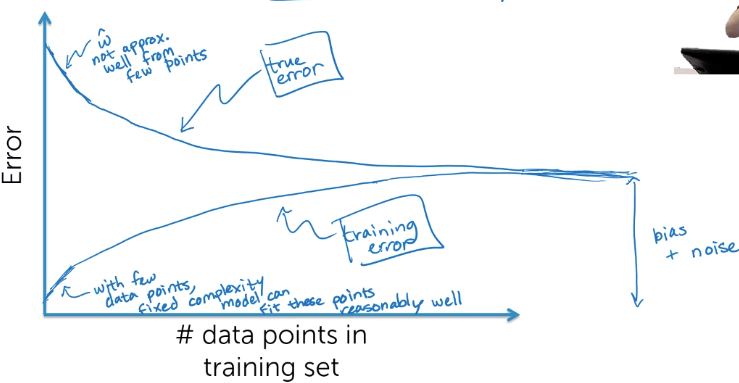 ŵ
not approx.
well from
few points
true
error
Error
training
error
bias
+ noise
with few
data points,
fixed complexity
model can
fit these points
reasonably well
# data points in
training set